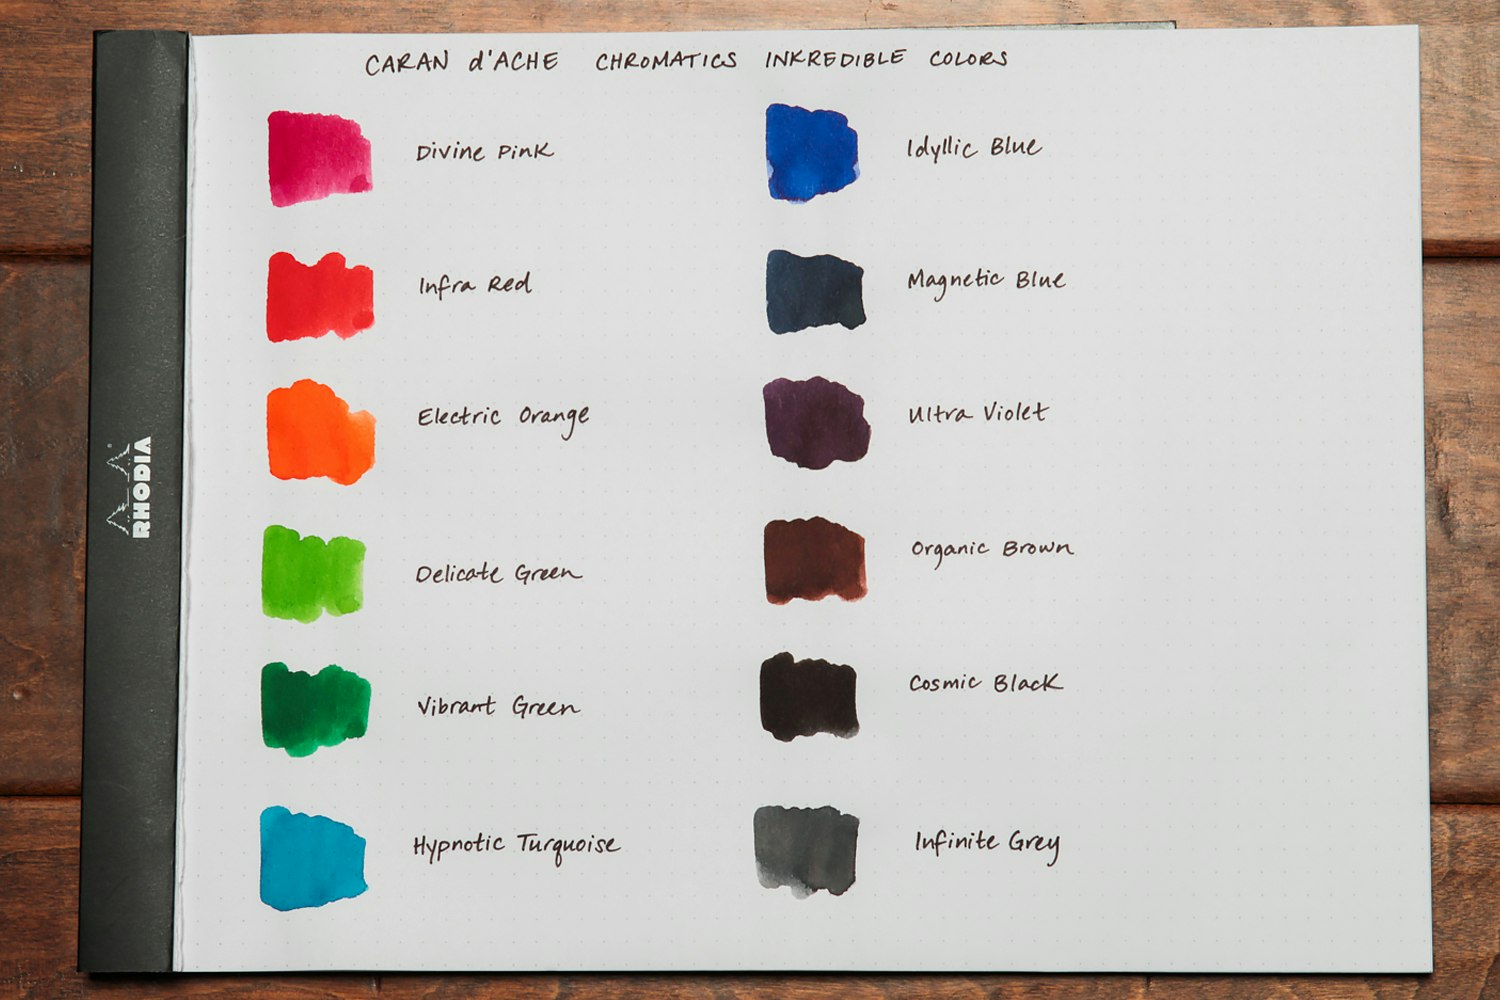 CARAN d'ACHE CHROMATICS INKREDIBLE COLORS
Divine Pink
Infra Red
Electric Orange
Delicate Green
Vibrant Green
Hypnotic Turquoise
Idyllic Blue
Magnetic Blue
Ultra Violet
Organic Brown
Cosmic Black
Infinite Grey
RHODIA